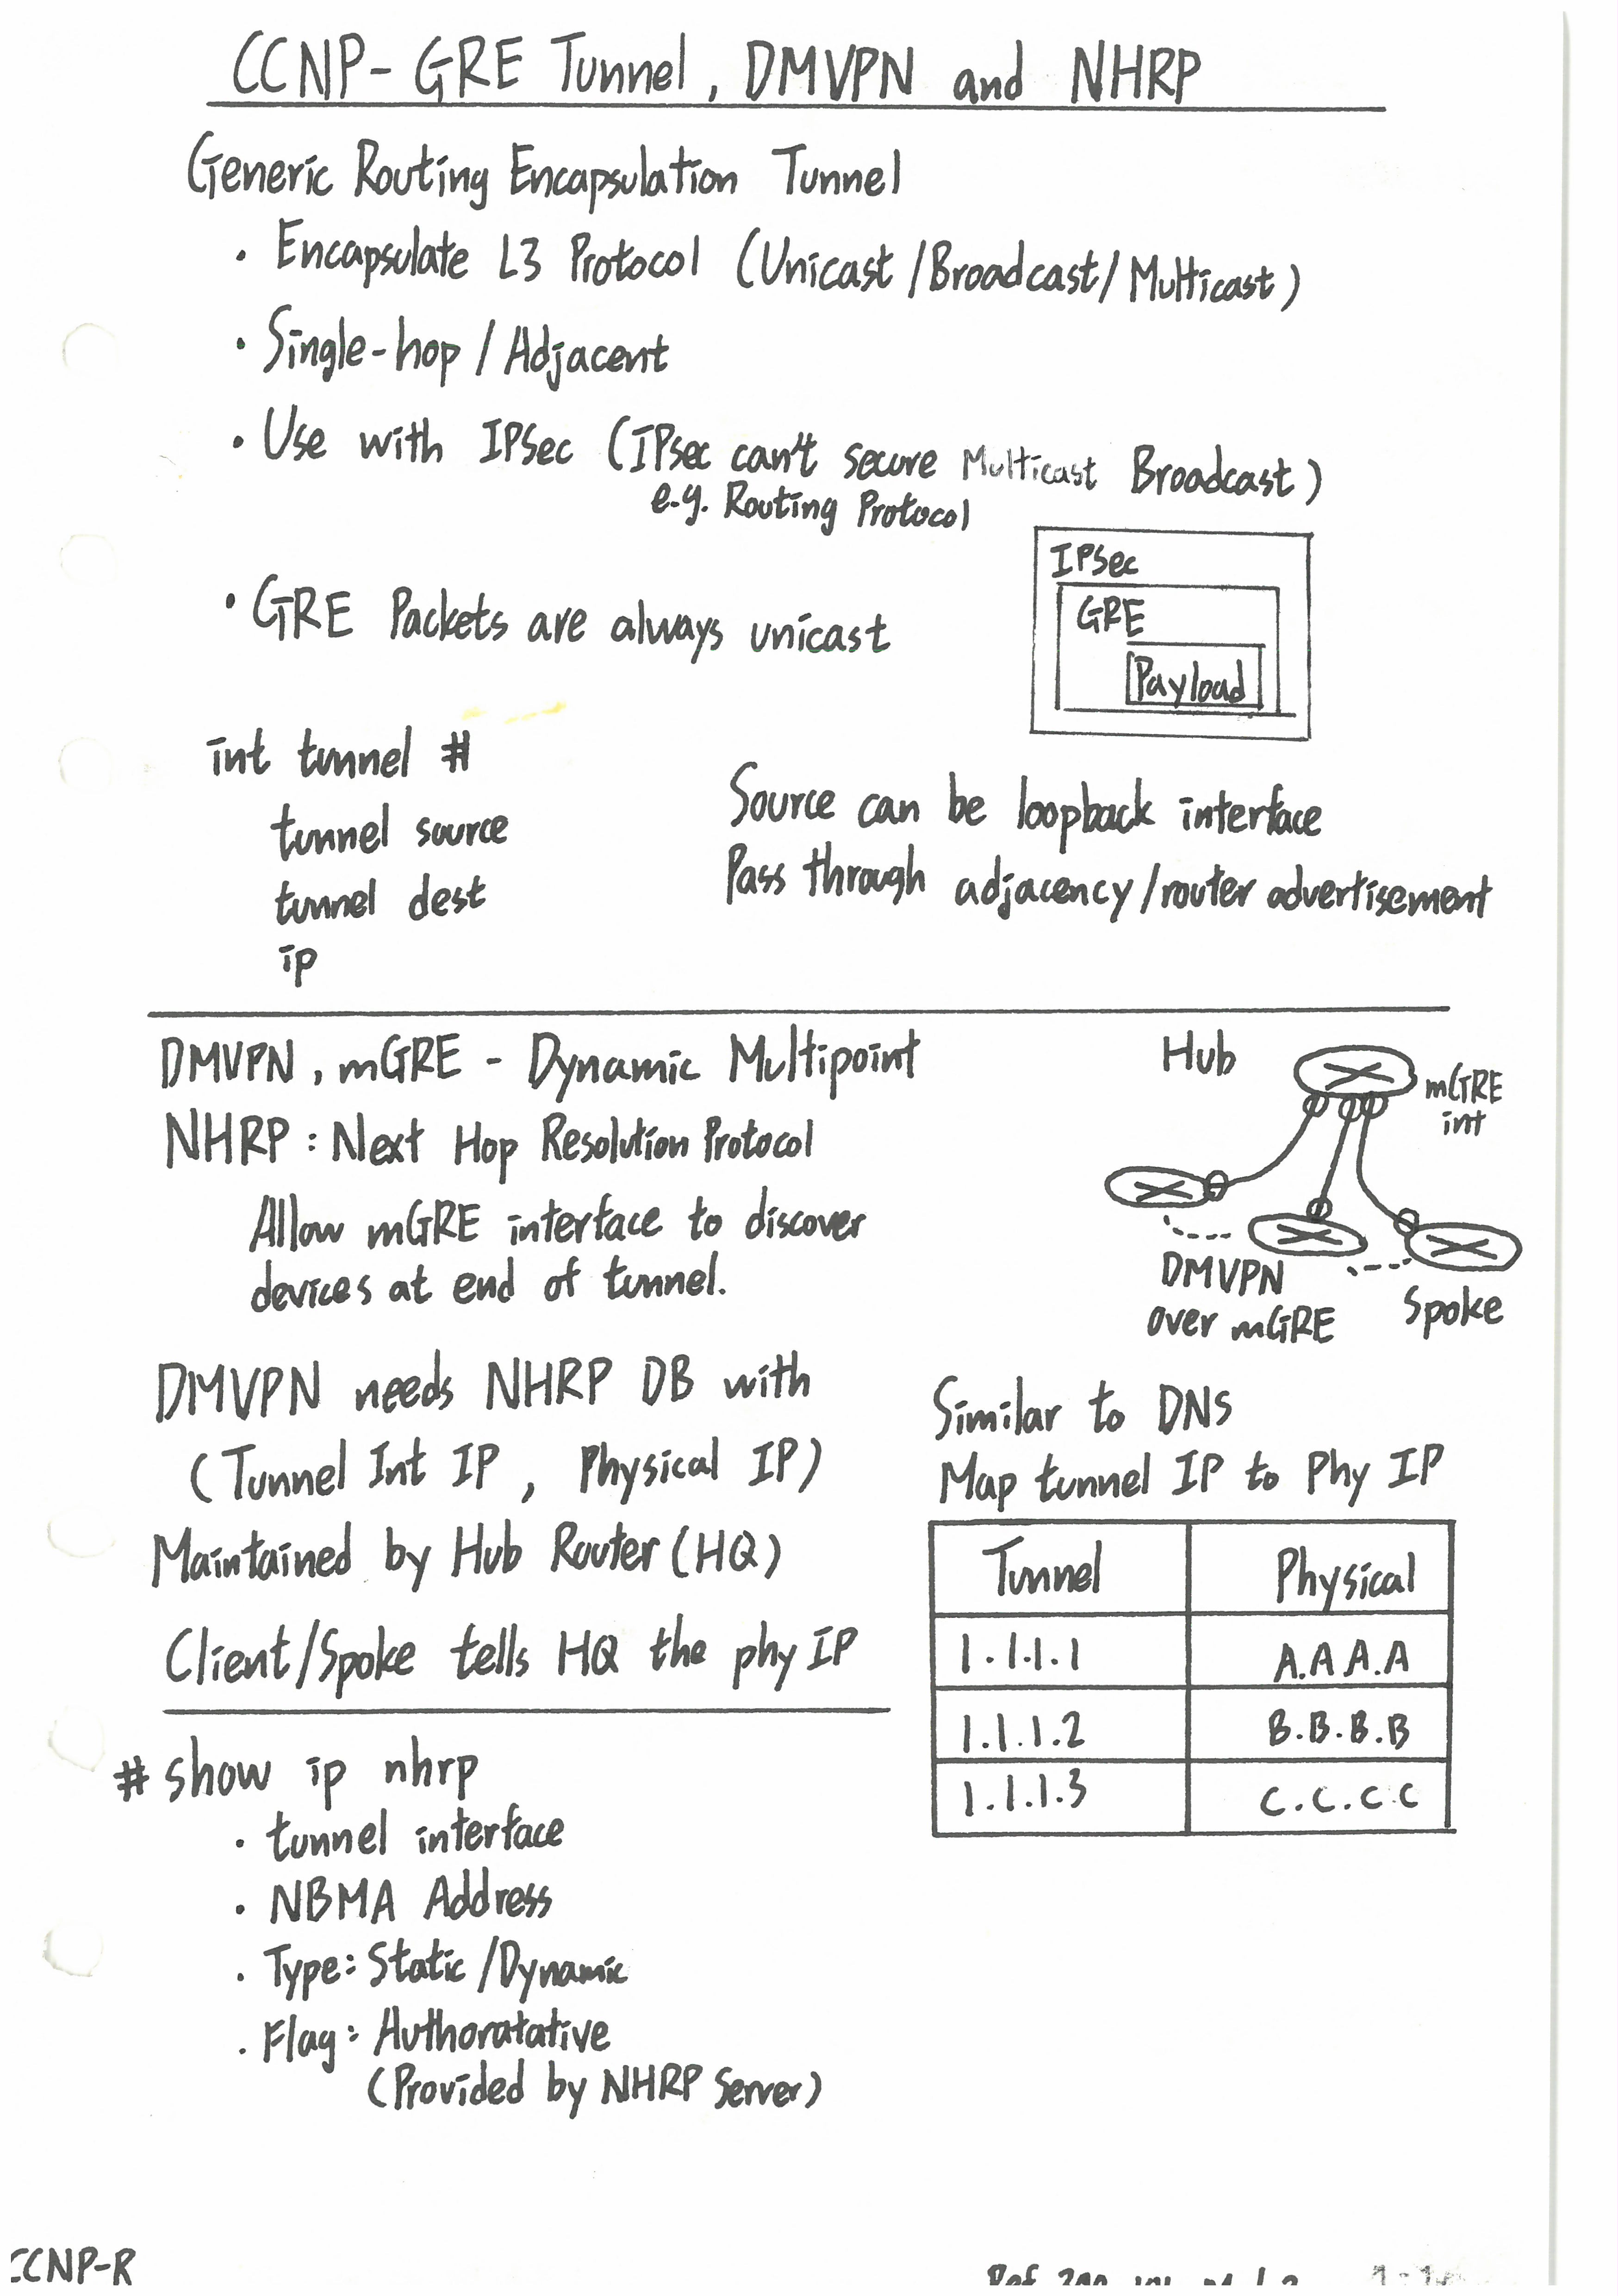 CCNP- GRE Tunnel, DMVPN and NHRP
Generic Routing Encapsulation Tunnel
· Encapsulate L3 Protocol (Unicast/Broadcast/Multicast)
· Single-hop / Adjacent
· Use with IPSec (IPsec can't secure Multicast Broadcast)
e.g. Routing Protocol
IPSec
GRE
Payload
· GRE Packets are always unicast
int tunnel #
tunnel source
tunnel dest
ip
Source can be loopback interface
Pass through adjacency/router advertisement
DMVPN, mGRE - Dynamic Multipoint
NHRP: Next Hop Resolution Protocol
Allow mGRE interface to discover
devices at end of tunnel.
Hub
mGRE
int
DMVPN
over mGRE
Spoke
DMVPN needs NHRP DB with
(Tunnel Int IP, Physical IP)
Maintained by Hub Router (HQ)
Client/Spoke tells HQ the phy IP
Similar to DNS
Map tunnel IP to Phy IP
Tunnel Physical
1.1.1.1 A.A.A.A
1.1.1.2 B.B.B.B
1.1.1.3 C.C.C.C
# show ip nhrp
· tunnel interface
· NBMA Address
· Type: Static/Dynamic
· Flag: Authoratative
(Provided by NHRP Server)
CCNP-R